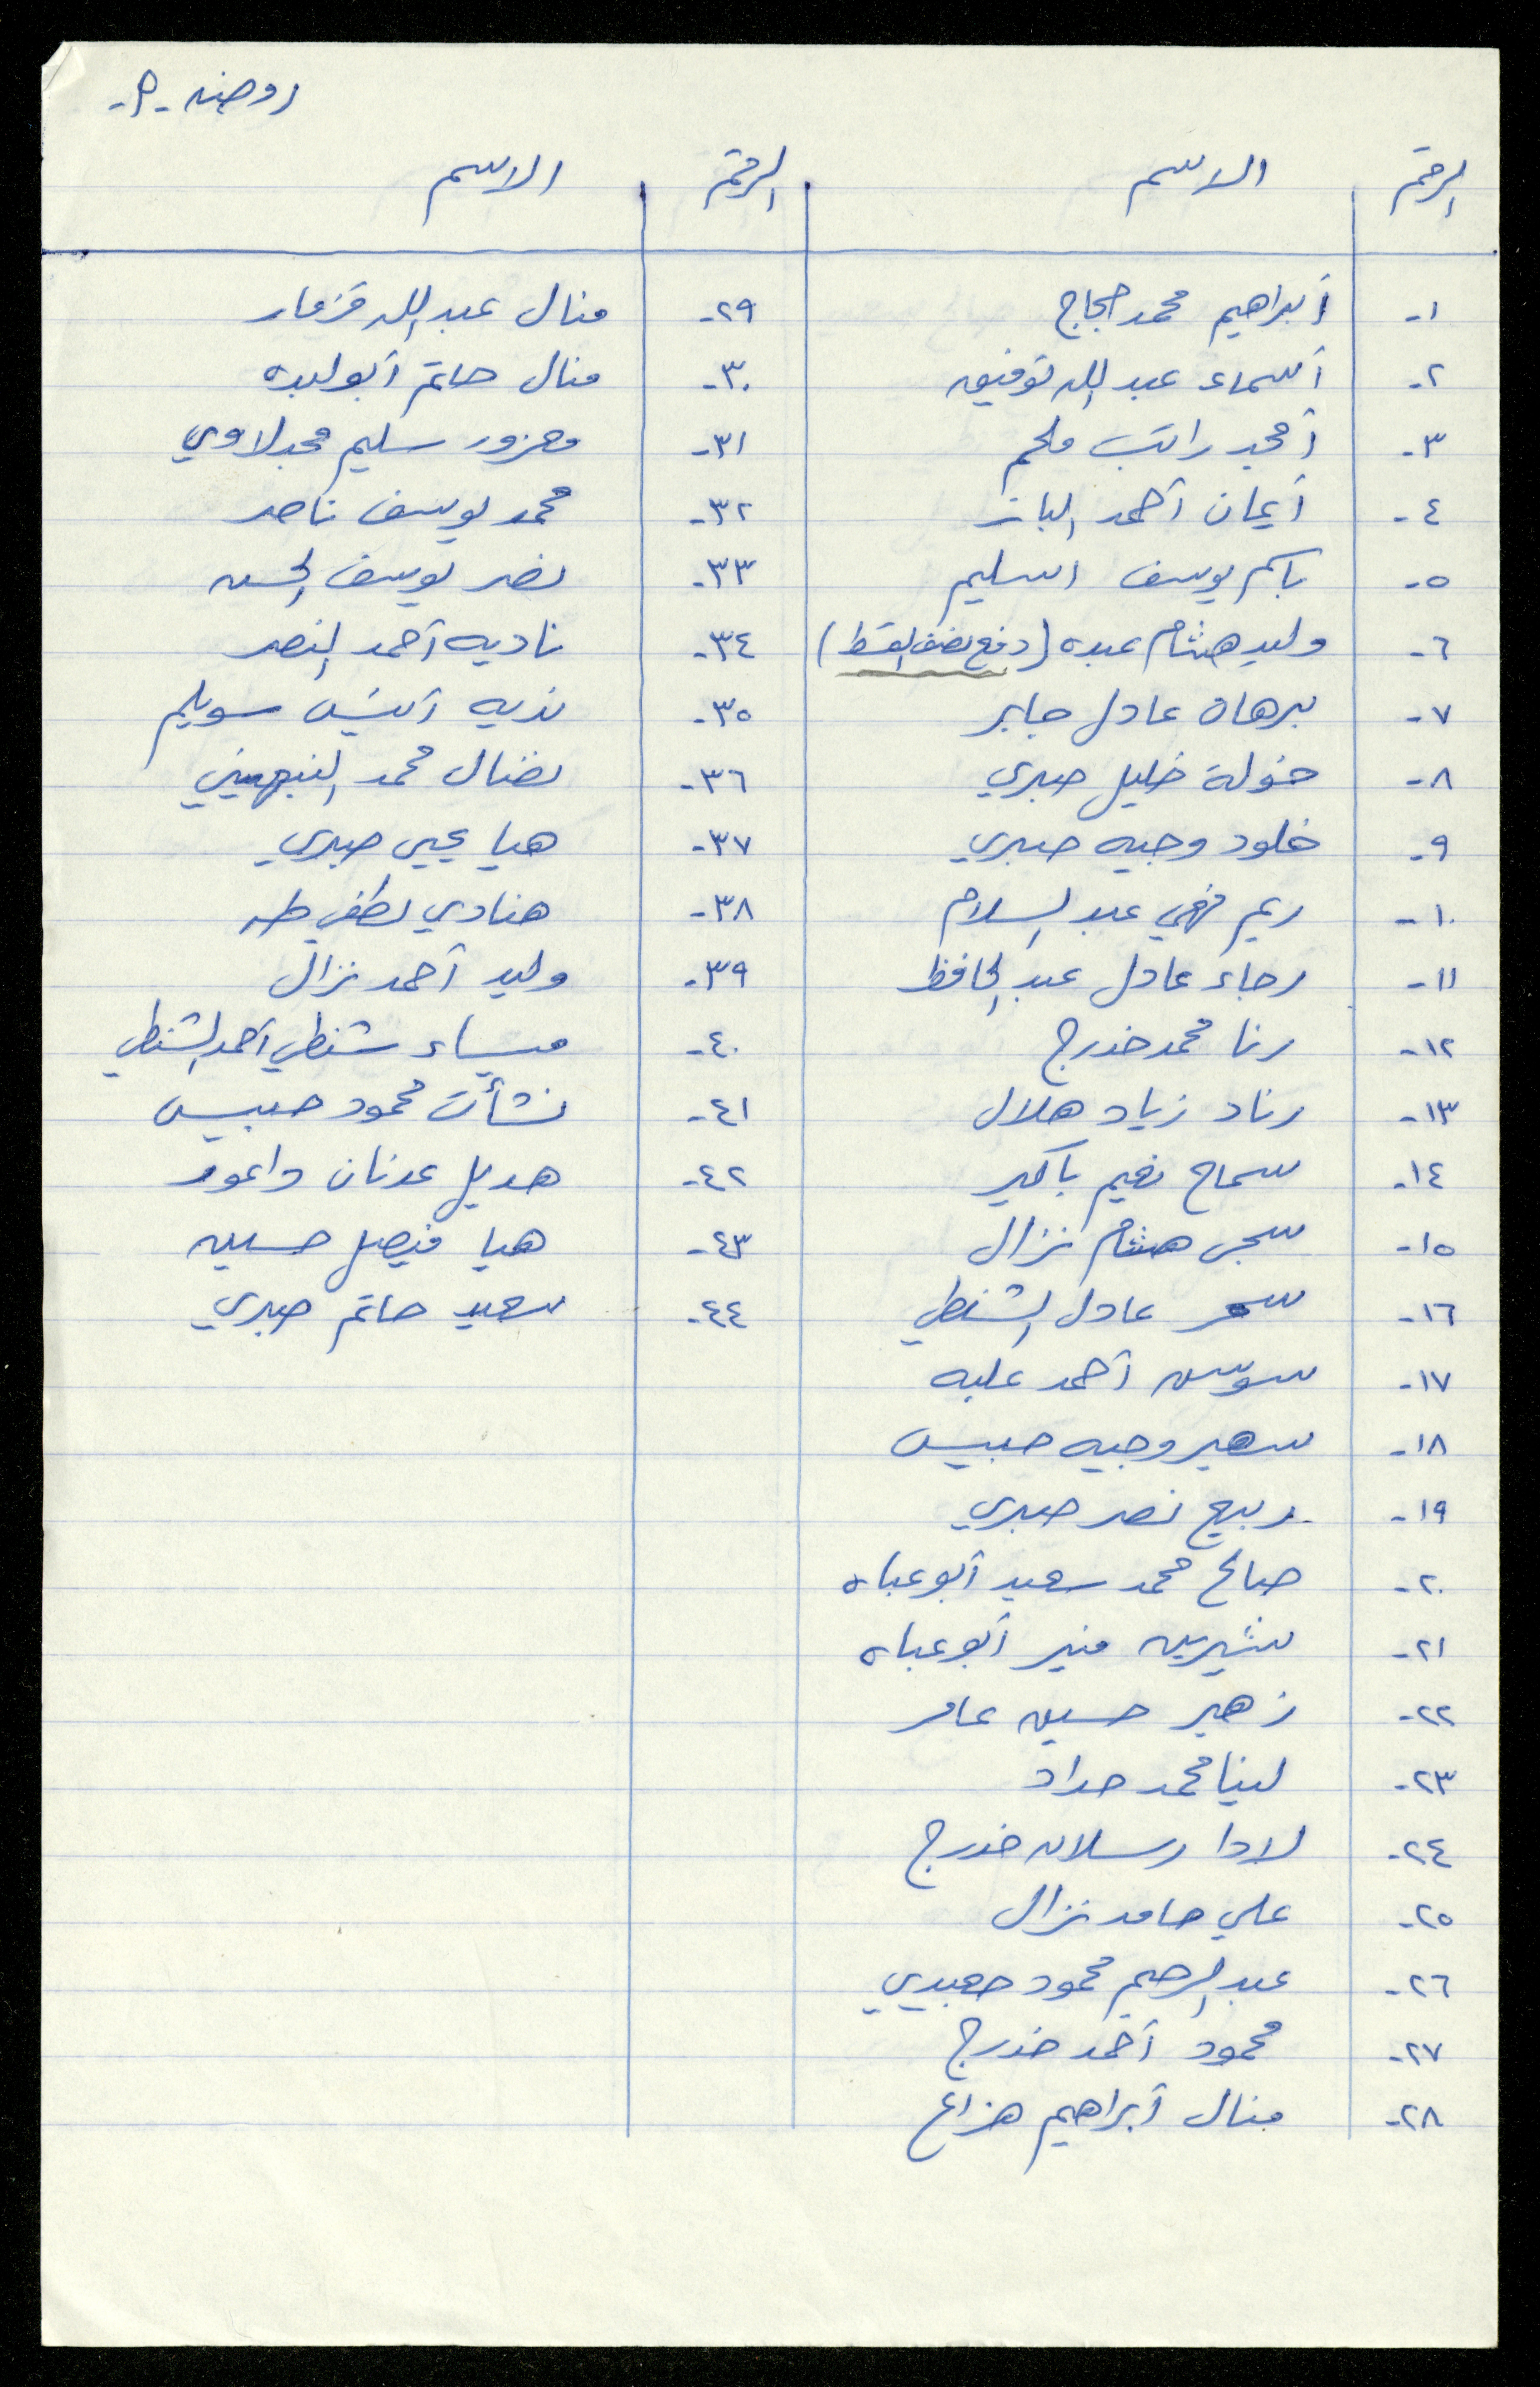 روضه -P-
الرقم الاسم الرقم الاسم
١- أبراهيم محمد حجاج
٢- أسماء عبد الله توفيق
٣- أمجد راتب ملحم
٤- أيمان أحمد الباز
٥- باسم يوسف السليم
٦- وليد هشام عبده (دفع نصف القسط)
٧- برهان عادل جابر
٨- خولة خليل صبري
٩- خلود وجيه صبري
١٠- ريم فهمي عبد السلام
١١- رجاء عادل عبد الحافظ
١٢- رنا محمد خدرج
١٣- رناد زياد هلال
١٤- سماح نعيم باكير
١٥- سجى هشام نزال
١٦- سحر عادل الشنطي
١٧- سوسن أحمد علبه
١٨- سهير وجيه حبيس
١٩- ربيع نصر صبري
٢٠- صالح محمد سعيد أبو عباه
٢١- شيرين منير أبو عباه
٢٢- زهير حسين عامر
٢٣- لينا محمد حداد
٢٤- لادا رسلان خدرج
٢٥- علي حامد نزال
٢٦- عبد الرحيم محمود جعيدي
٢٧- محمود أحمد خدرج
٢٨- منال أبراهيم هزاع
٢٩- منال عبد الله قزمار
٣٠- منال حاتم أبو لبده
٣١- معزوز سليم مجدلاوي
٣٢- محمد يوسف ناصر
٣٣- نصر يوسف الحسن
٣٤- ناديه أحمد النصر
٣٥- نزيه أنيس سويلم
٣٦- نضال محمد
٣٧- هيا يحيى صبري
٣٨- هنادي لطفي طه
٣٩- وليد أحمد نزال
٤٠- ميساء شنطي أحمد الشنطي
٤١- نشأت محمود حبيس
٤٢- هديل عدنان داعور
٤٣- هيا فيصل حسين
٤٤- سعيد حاتم صبري